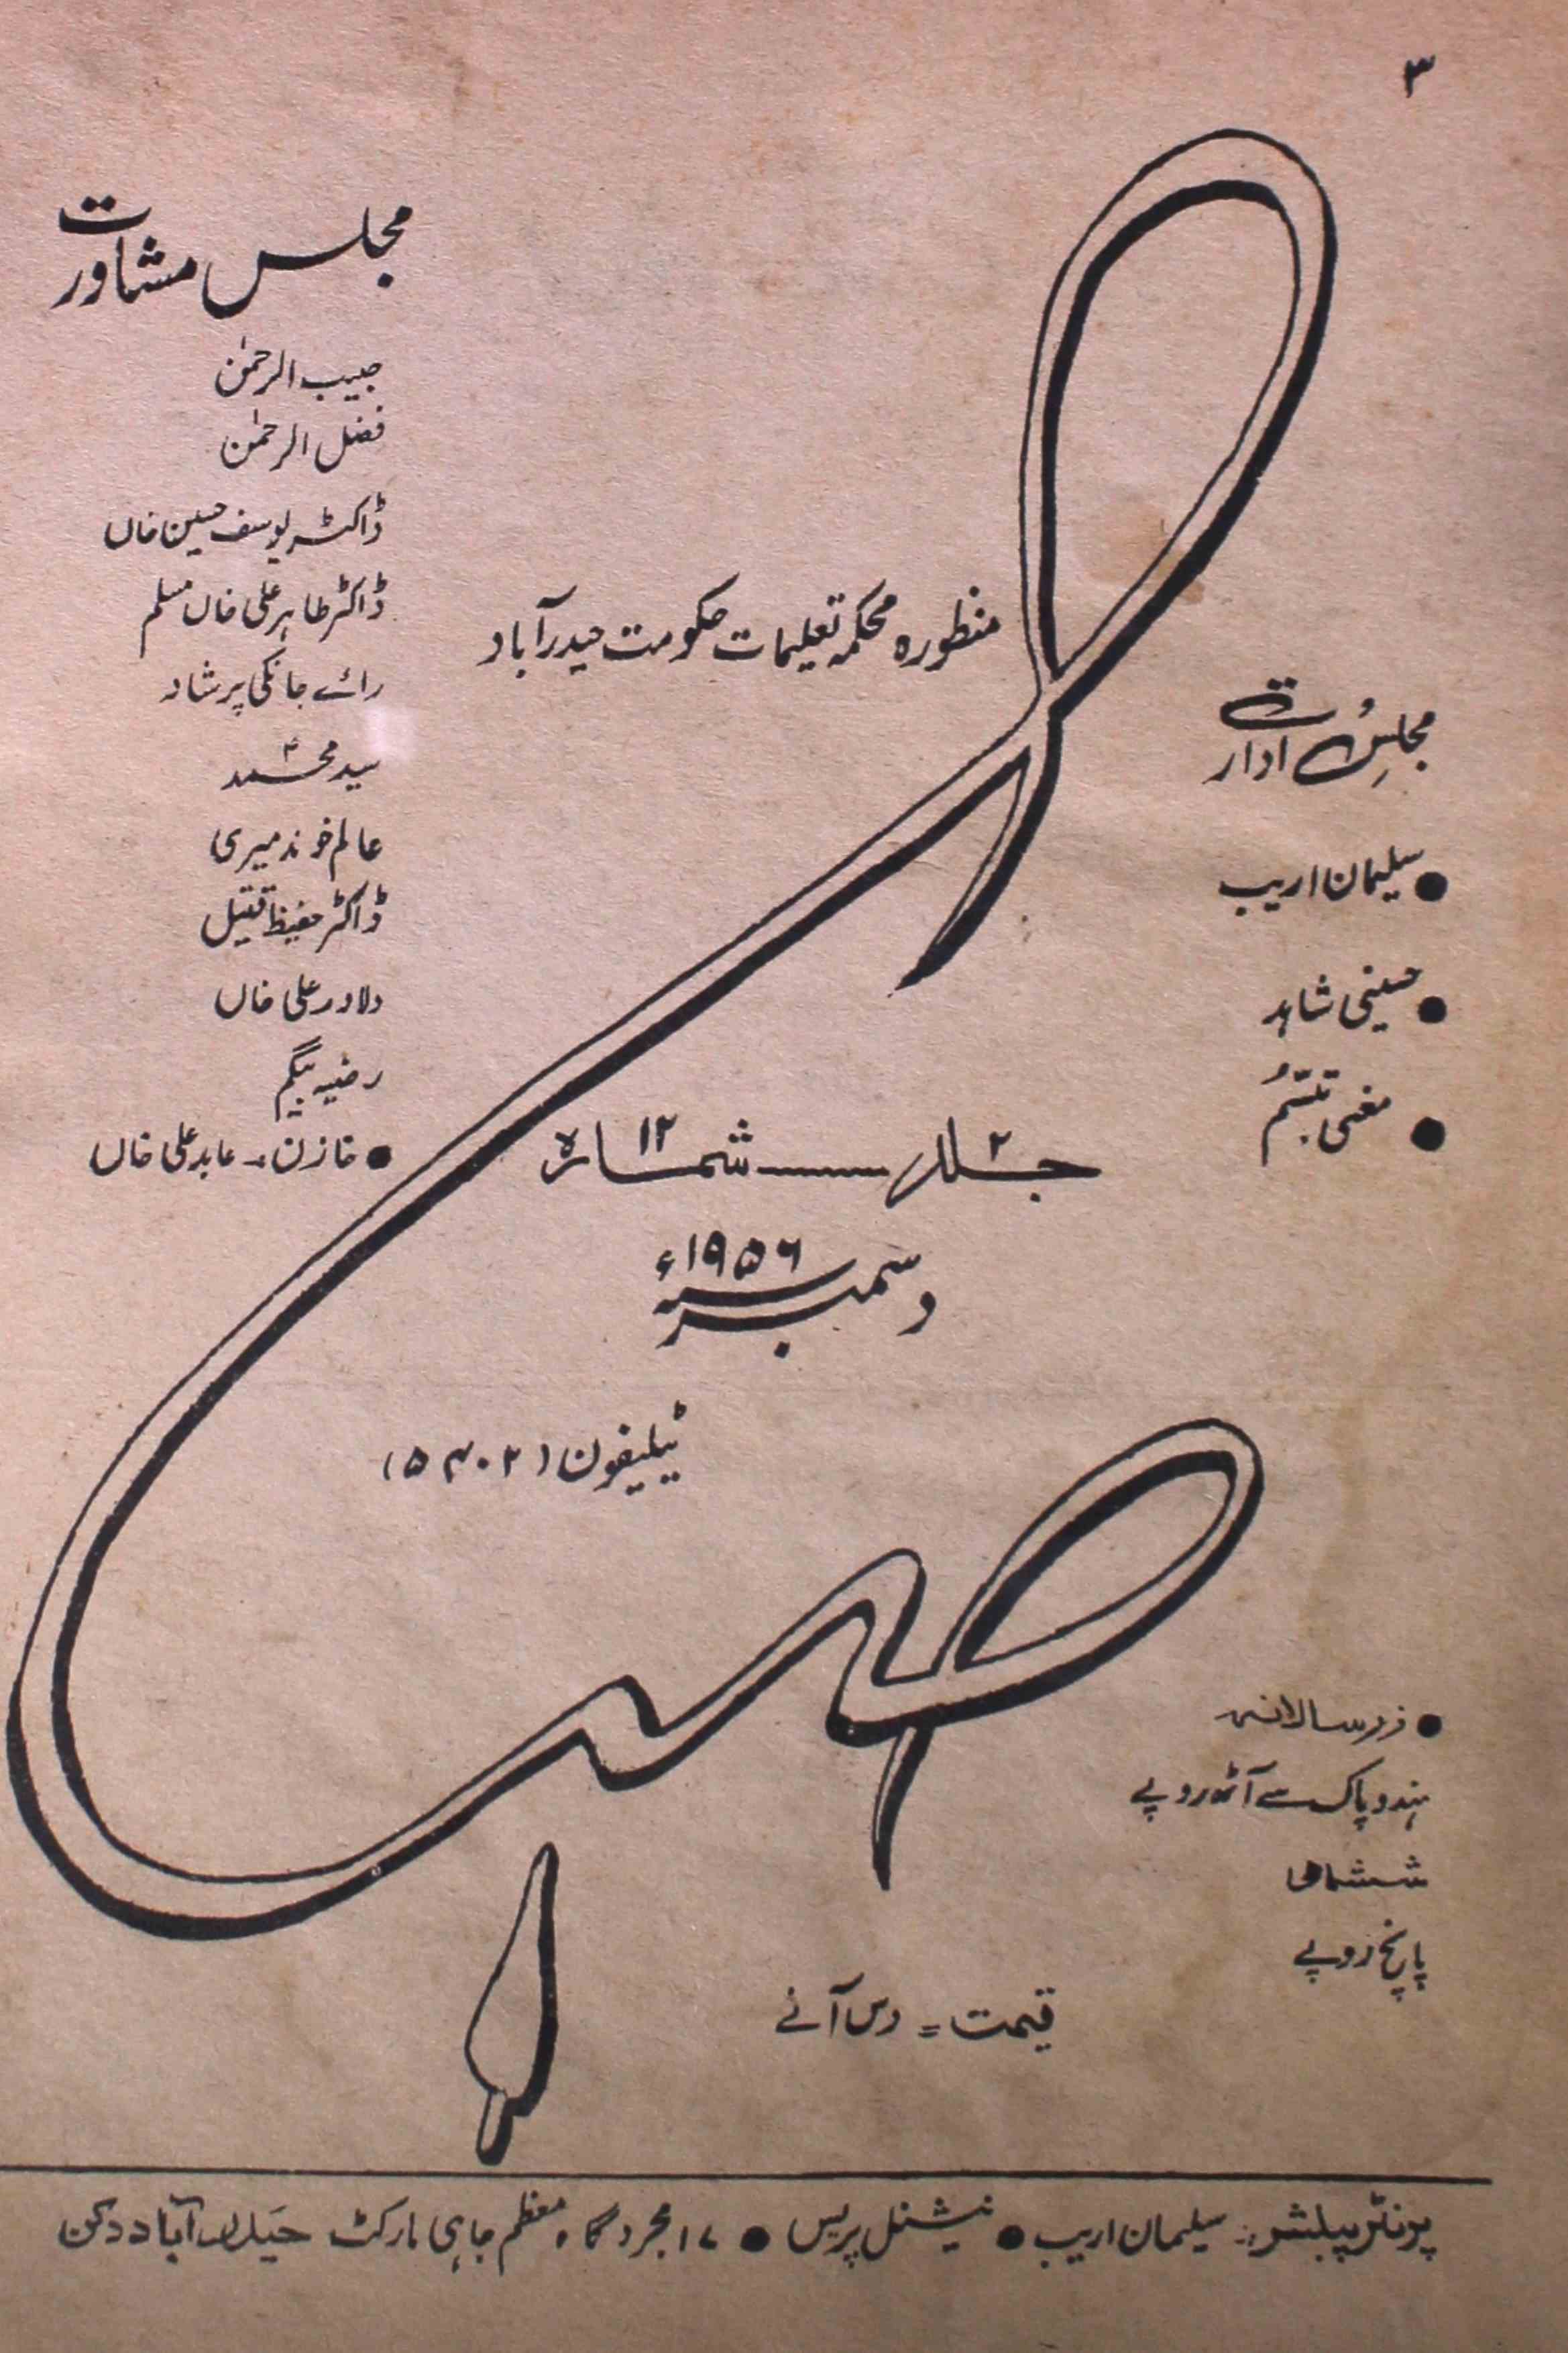 ۳
صبا
مجلس مشاورت
حبیب الرحمٰن
فضل الرحمٰن
ڈاکٹر یوسف حسین خاں
ڈاکٹر طاہر علی خاں مسلم
رائے جانکی پرشاد
سید محمد
عالم خوندمیری
ڈاکٹر حفیظ قتیل
دلاور علی خاں
رضیہ بیگم
● خازن۔ عابد علی خاں
منظورہ محکمہ تعلیمات حکومت حیدرآباد
مجلسِ ادارت
● سلیمان اریب
● حسینی شاہد
● مغنی تبسّم
جلد ۲ ــــــ شمارہ ۱۲
دسمبر ۱۹۵۶ء
ٹیلیفون (۵۳۰۲)
● زرسالانہ
ہند و پاک سے آٹھ روپے
ششماہی
پانچ روپے
قیمت = دس آنے
پرنٹر پبلشر: سلیمان اریب ● نیشنل پریس ● ۱۷ مجردگاہ معظم جاہی مارکٹ حیدرآباد دکن